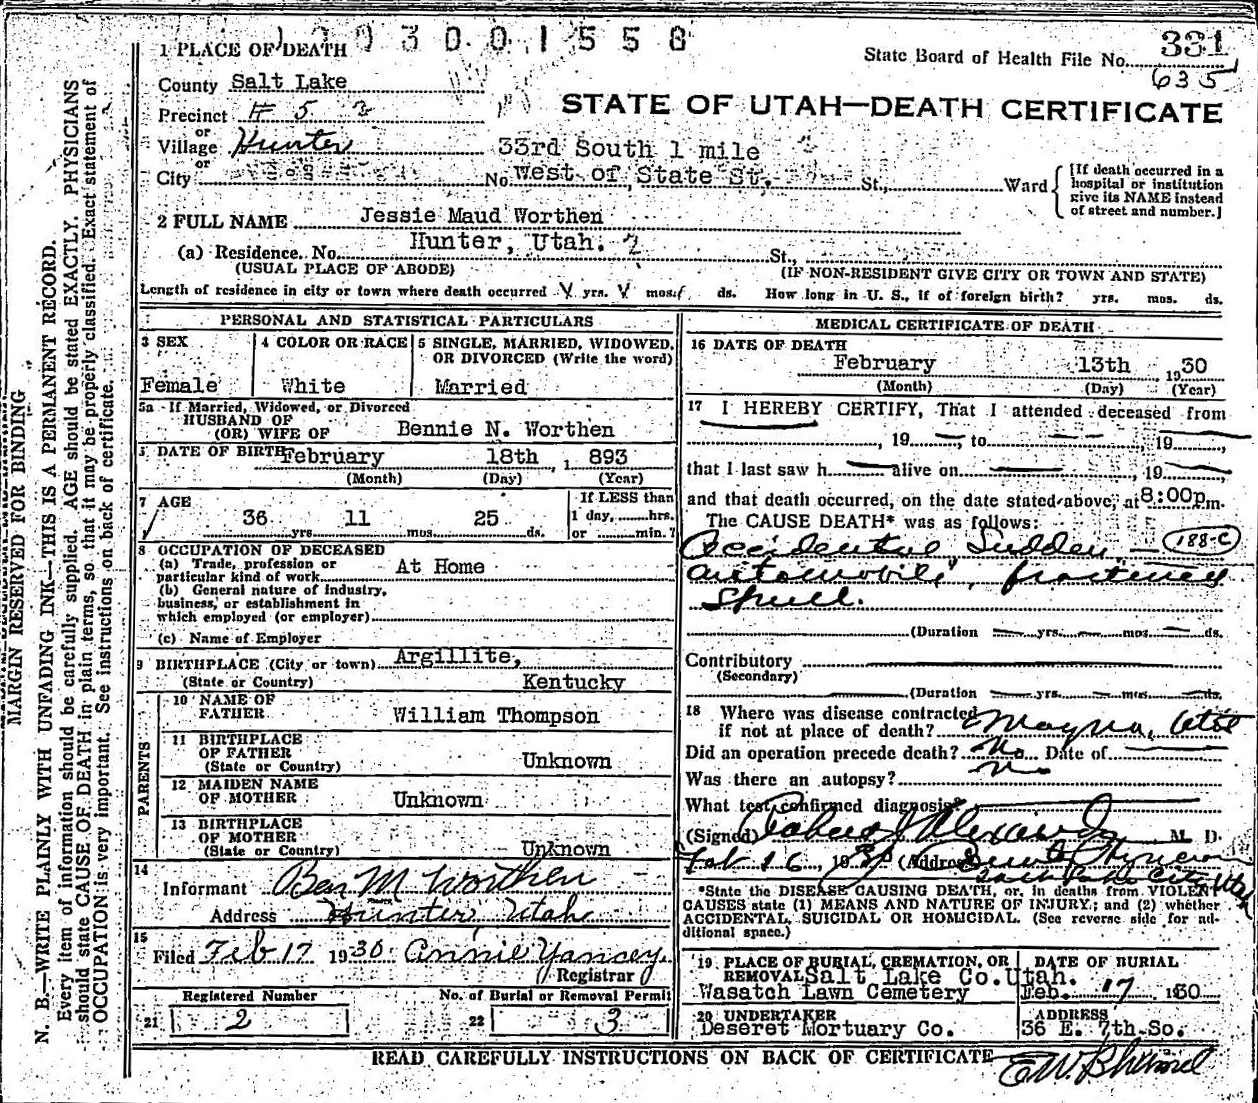 1 9 3 0 0 1 5 5 8
State Board of Health File No. 331
635
1 PLACE OF DEATH
County Salt Lake
STATE OF UTAH—DEATH CERTIFICATE
Precinct # 5 2
or
Village Hunter
33rd South 1 mile
or
City No. West of State St. St., Ward
[If death occurred in a hospital or institution give its NAME instead of street and number.]
2 FULL NAME Jessie Maud Worthen
(a) Residence. No. Hunter, Utah. 2 St.,
(USUAL PLACE OF ABODE) (IF NON-RESIDENT GIVE CITY OR TOWN AND STATE)
Length of residence in city or town where death occurred yrs. mos. ds. How long in U. S., if of foreign birth? yrs. mos. ds.
PERSONAL AND STATISTICAL PARTICULARS
3 SEX
Female
4 COLOR OR RACE
White
5 SINGLE, MARRIED, WIDOWED,
OR DIVORCED (Write the word)
Married
5a If Married, Widowed, or Divorced
HUSBAND OF
(OR) WIFE OF Bennie N. Worthen
DATE OF BIRTH February 18th, 1893
(Month) (Day) (Year)
7 AGE
36 yrs. 11 mos. 25 ds.
If LESS than
1 day, hrs.
or min.?
8 OCCUPATION OF DECEASED
(a) Trade, profession or
particular kind of work At Home
(b) General nature of industry,
business, or establishment in
which employed (or employer)
(c) Name of Employer
9 BIRTHPLACE (City or town) Argillite,
(State or Country) Kentucky
PARENTS
10 NAME OF
FATHER William Thompson
11 BIRTHPLACE
OF FATHER
(State or Country) Unknown
12 MAIDEN NAME
OF MOTHER Unknown
13 BIRTHPLACE
OF MOTHER
(State or Country) Unknown
14
Informant Ben M Worthen
Address Hunter, Utah
15
Filed Feb 17 1930 Annie Yancey.
Registrar
Registered Number
21 2
No. of Burial or Removal Permit
22 3
MEDICAL CERTIFICATE OF DEATH
16 DATE OF DEATH
February 13th 1930
(Month) (Day) (Year)
17 I HEREBY CERTIFY, That I attended deceased from
, 19 , to 19
that I last saw h alive on , 19
and that death occurred, on the date stated above, at 8:00p.m.
The CAUSE DEATH* was as follows:
Accidental Sudden — 188-c
automobile, fractured
Skull.
(Duration yrs. mos. ds.
Contributory
(Secondary)
(Duration yrs. mos. ds.
18 Where was disease contracted
if not at place of death? Magna, Utah
Did an operation precede death? No Date of
Was there an autopsy? No
What test confirmed diagnosis?
(Signed) M. D.
Feb 16, 19 (Address
Salt Lake City Utah
*State the DISEASE CAUSING DEATH, or, in deaths from VIOLENT
CAUSES state (1) MEANS AND NATURE OF INJURY; and (2) whether
ACCIDENTAL, SUICIDAL OR HOMICIDAL. (See reverse side for ad-
ditional space.)
19 PLACE OF BURIAL, CREMATION, OR
REMOVAL Salt Lake Co. Utah.
Wasatch Lawn Cemetery
DATE OF BURIAL
Feb. 17 1930
20 UNDERTAKER
Deseret Mortuary Co.
ADDRESS
36 E. 7th So.
READ CAREFULLY INSTRUCTIONS ON BACK OF CERTIFICATE
MARGIN RESERVED FOR BINDING
N. B.—WRITE PLAINLY WITH UNFADING INK—THIS IS A PERMANENT RECORD.
Every item of information should be carefully supplied. AGE should be stated EXACTLY. PHYSICIANS
should state CAUSE OF DEATH in plain terms, so that it may be properly classified. Exact statement of
OCCUPATION is very important. See instructions on back of certificate.